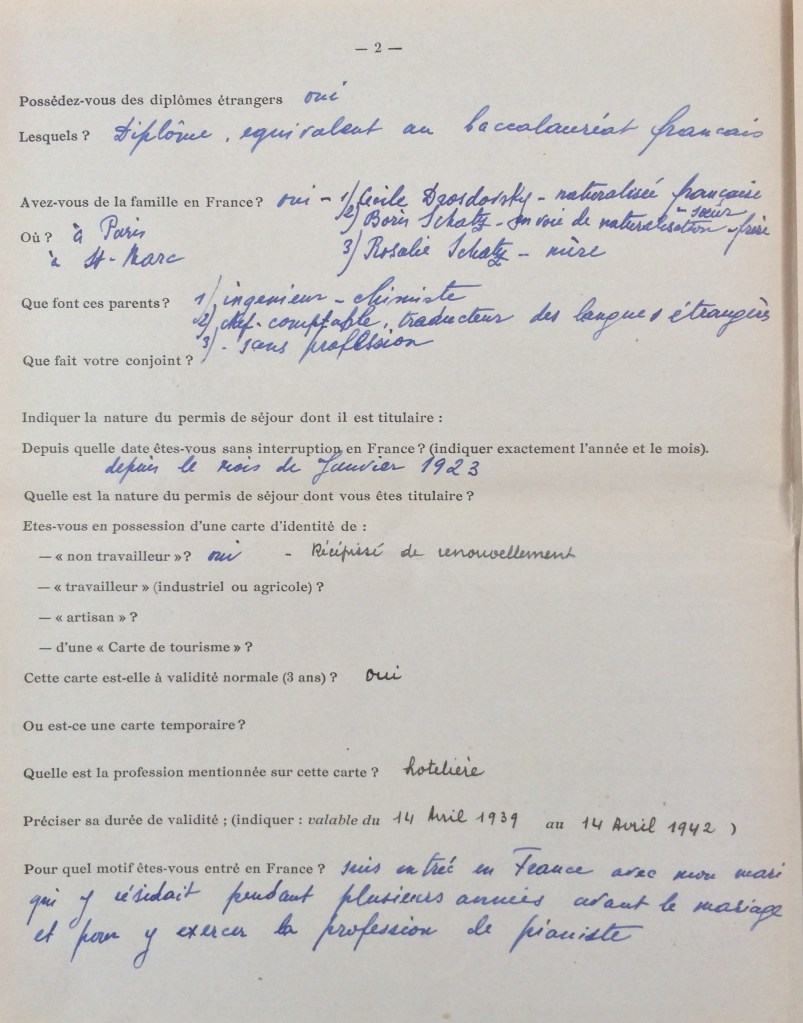 — 2 —
Possédez-vous des diplômes étrangers oui
Lesquels ? Diplôme, equivalent au baccalauréat francais
Avez-vous de la famille en France ? oui - 1) Cécile Drosdovsky - naturalisée française - sœur
Où ? à Paris 2) Boris Schatz - en voie de naturalisation - frère
à St-Marc 3) Rosalie Schatz - mère
Que font ces parents ? 1) ingenieur - chimiste
2) chef-comptable, traducteur des langues étrangères
3) - sans profession
Que fait votre conjoint ?
Indiquer la nature du permis de séjour dont il est titulaire :
Depuis quelle date êtes-vous sans interruption en France ? (indiquer exactement l'année et le mois).
depuis le mois de Janvier 1923
Quelle est la nature du permis de séjour dont vous êtes titulaire ?
Etes-vous en possession d'une carte d'identité de :
— « non travailleur » ? oui - Récipissé de renouvellement
— « travailleur » (industriel ou agricole) ?
— « artisan » ?
— d'une « Carte de tourisme » ?
Cette carte est-elle à validité normale (3 ans) ? oui
Ou est-ce une carte temporaire ?
Quelle est la profession mentionnée sur cette carte ? hotelière
Préciser sa durée de validité ; (indiquer : valable du 14 Avril 1939 au 14 Avril 1942 )
Pour quel motif êtes-vous entré en France ? suis entrée en France avec mon mari
qui y résidait pendant plusieurs années avant le mariage
et pour y exercer la profession de pianiste